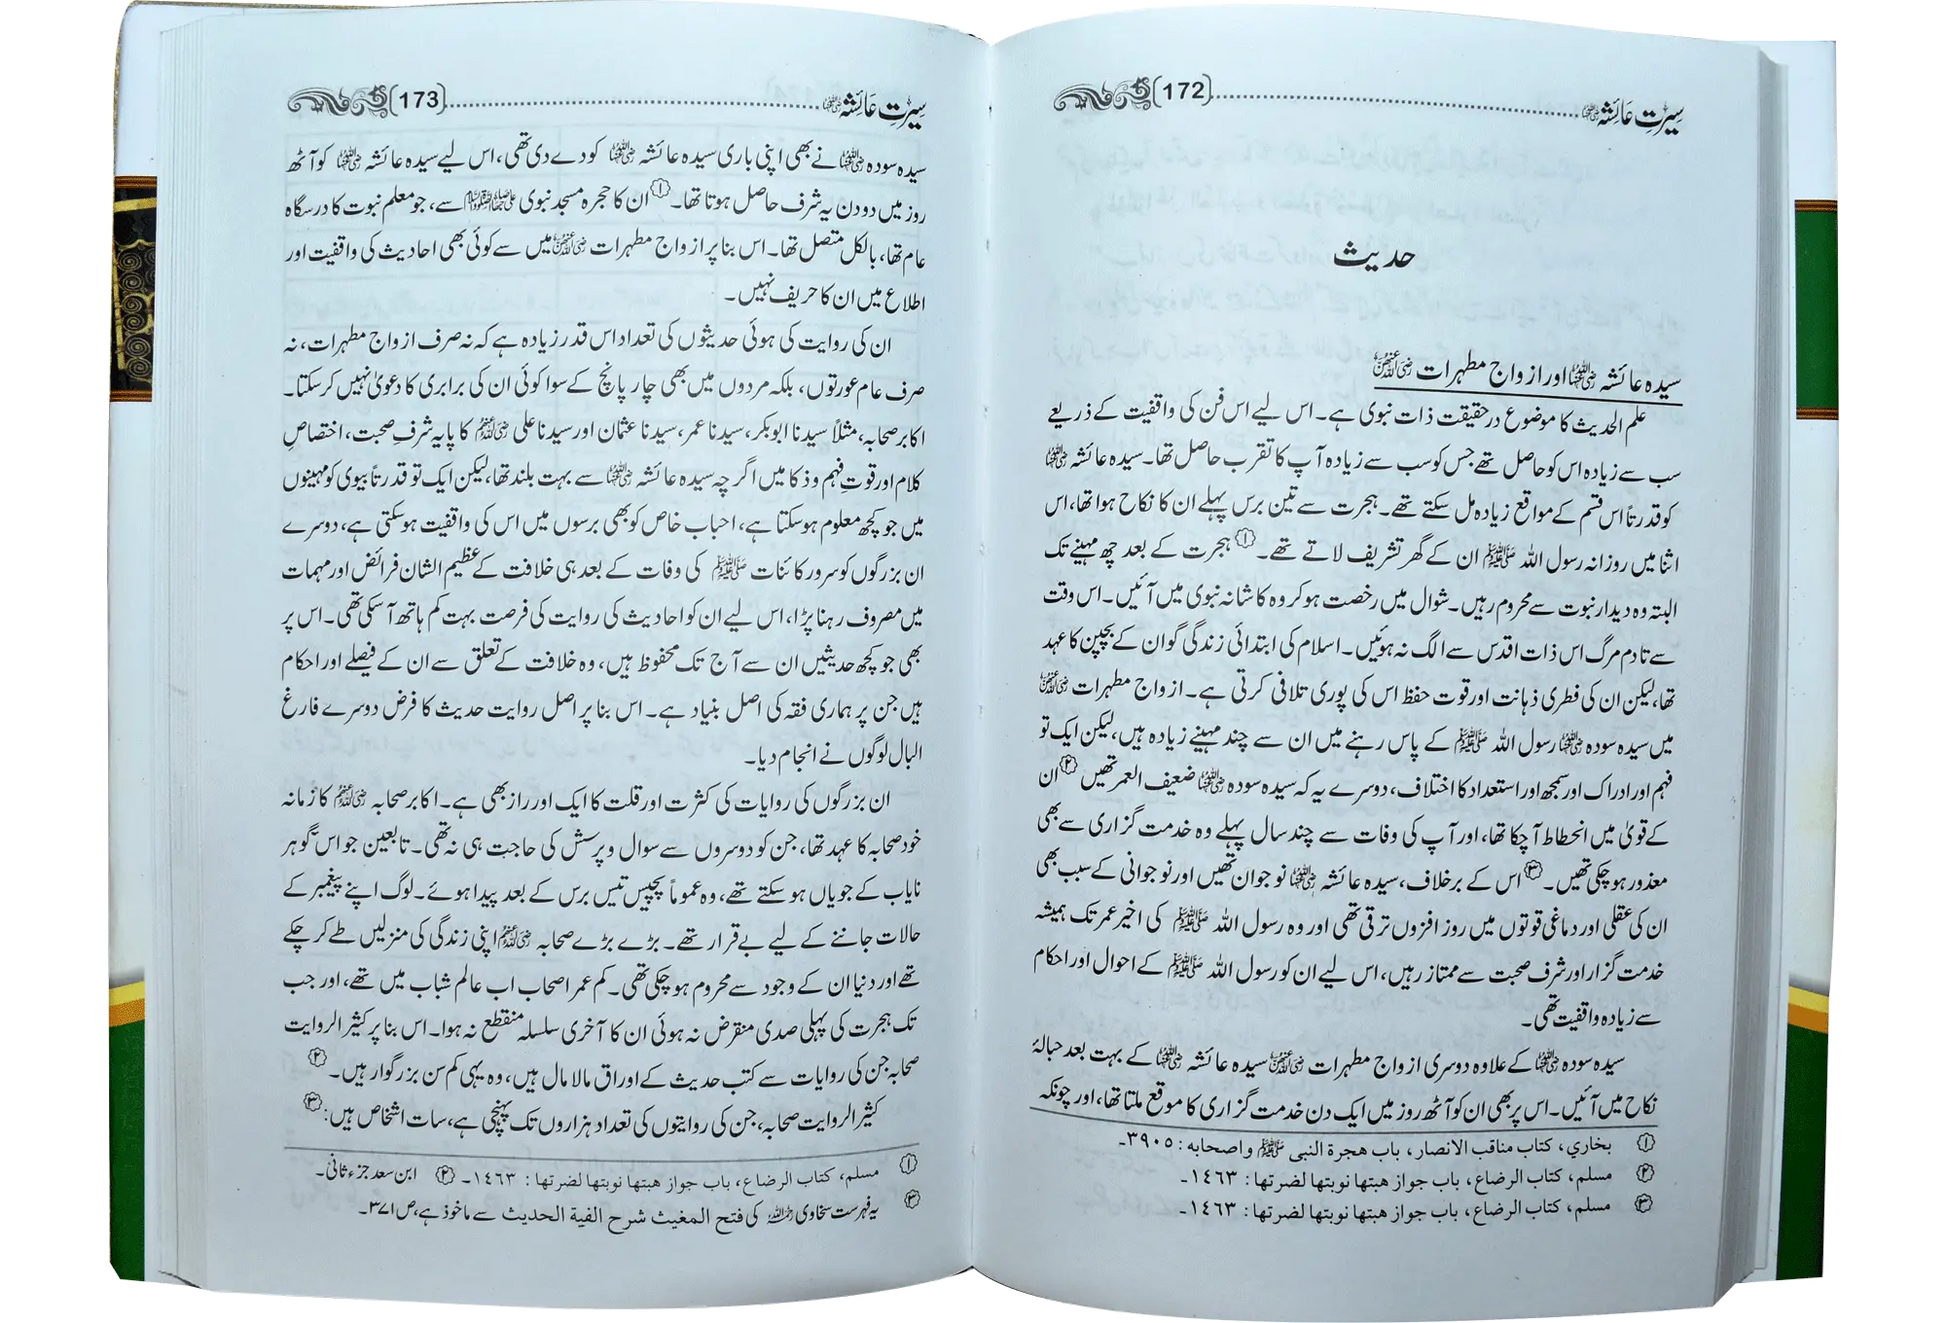 سیرتِ عَائِشہ ؓ (172)
حدیث
سیدہ عائشہ ؓ اور ازواج مطہرات ؓ
علم الحدیث کا موضوع درحقیقت ذات نبوی ہے۔ اس لیے اس فن کی واقفیت کے ذریعے
سب سے زیادہ اس کو حاصل تھے جس کو سب سے زیادہ آپ کا تقرب حاصل تھا۔ سیدہ عائشہ ؓ
کو قدرتاً اس قسم کے مواقع زیادہ مل سکتے تھے۔ ہجرت سے تین برس پہلے ان کا نکاح ہوا تھا، اس
اثنا میں روزانہ رسول اللہ ﷺ ان کے گھر تشریف لاتے تھے۔ ① ہجرت کے بعد چھ مہینے تک
البتہ وہ دیدار نبوت سے محروم رہیں۔ شوال میں رخصت ہو کر وہ کاشانہ نبوی میں آئیں۔ اس وقت
سے تادم مرگ اس ذات اقدس سے الگ نہ ہوئیں۔ اسلام کی ابتدائی زندگی گو ان کے بچپن کا عہد
تھا، لیکن ان کی فطری ذہانت اور قوت حفظ اس کی پوری تلافی کرتی ہے۔ ازواج مطہرات ؓ
میں سیدہ سودہ ؓ رسول اللہ ﷺ کے پاس رہنے میں ان سے چند مہینے زیادہ ہیں، لیکن ایک تو
فہم اور ادراک اور سمجھ اور استعداد کا اختلاف، دوسرے یہ کہ سیدہ سودہ ؓ ضعیف العمر تھیں ② ان
کے قویٰ میں انحطاط آچکا تھا، اور آپ کی وفات سے چند سال پہلے وہ خدمت گزاری سے بھی
معذور ہوچکی تھیں۔ ③ اس کے برخلاف، سیدہ عائشہ ؓ نوجوان تھیں اور نوجوانی کے سبب بھی
ان کی عقلی اور دماغی قوتوں میں روز افزوں ترقی تھی اور وہ رسول اللہ ﷺ کی اخیر عمر تک ہمیشہ
خدمت گزار اور شرف صحبت سے ممتاز رہیں، اس لیے ان کو رسول اللہ ﷺ کے احوال اور احکام
سے زیادہ واقفیت تھی۔
سیدہ سودہ ؓ کے علاوہ دوسری ازواج مطہرات ؓ سیدہ عائشہ ؓ کے بہت بعد حبالۂ
نکاح میں آئیں۔ اس پر بھی ان کو آٹھ روز میں ایک دن خدمت گزاری کا موقع ملتا تھا، اور چونکہ
① بخاري، کتاب مناقب الانصار، باب هجرة النبی ﷺ واصحابه : ۳۹۰۵۔
② مسلم، کتاب الرضاع، باب جواز هبتها نوبتها لضرتها : ١٤٦٣۔
③ مسلم، کتاب الرضاع، باب جواز هبتها نوبتها لضرتها : ١٤٦٣۔
سیرتِ عَائِشہ ؓ (173)
سیدہ سودہ ؓ نے بھی اپنی باری سیدہ عائشہ ؓ کو دے دی تھی، اس لیے سیدہ عائشہ ؓ کو آٹھ
روز میں دو دن یہ شرف حاصل ہوتا تھا۔ ① ان کا حجرہ مسجد نبوی ﷺ سے، جو معلم نبوت کا درسگاہ
عام تھا، بالکل متصل تھا۔ اس بنا پر ازواج مطہرات ؓ میں سے کوئی بھی احادیث کی واقفیت اور
اطلاع میں ان کا حریف نہیں۔
ان کی روایت کی ہوئی حدیثوں کی تعداد اس قدر زیادہ ہے کہ نہ صرف ازواج مطہرات، نہ
صرف عام عورتوں، بلکہ مردوں میں بھی چار پانچ کے سوا کوئی ان کی برابری کا دعویٰ نہیں کرسکتا۔
اکابر صحابہ، مثلاً سیدنا ابوبکر، سیدنا عمر، سیدنا عثمان اور سیدنا علی ؓ کا پایہ شرفِ صحبت، اختصاصِ
کلام اور قوتِ فہم و ذکا میں اگرچہ سیدہ عائشہ ؓ سے بہت بلند تھا، لیکن ایک تو قدرتاً بیوی کو مہینوں
میں جو کچھ معلوم ہوسکتا ہے، احباب خاص کو بھی برسوں میں اس کی واقفیت ہوسکتی ہے، دوسرے
ان بزرگوں کو سرور کائنات ﷺ کی وفات کے بعد ہی خلافت کے عظیم الشان فرائض اور مہمات
میں مصروف رہنا پڑا، اس لیے ان کو احادیث کی روایت کی فرصت بہت کم ہاتھ آسکی تھی۔ اس پر
بھی جو کچھ حدیثیں ان سے آج تک محفوظ ہیں، وہ خلافت کے تعلق سے ان کے فیصلے اور احکام
ہیں جن پر ہماری فقہ کی اصل بنیاد ہے۔ اس بنا پر اصل روایت حدیث کا فرض دوسرے فارغ
البال لوگوں نے انجام دیا۔
ان بزرگوں کی روایات کی کثرت اور قلت کا ایک اور راز بھی ہے۔ اکابر صحابہ ؓ کا زمانہ
خود صحابہ کا عہد تھا، جن کو دوسروں سے سوال و پرسش کی حاجت ہی نہ تھی۔ تابعین جو اس گوہر
نایاب کے جویاں ہوسکتے تھے، وہ عموماً پچیس تیس برس کے بعد پیدا ہوئے۔ لوگ اپنے پیغمبر کے
حالات جاننے کے لیے بے قرار تھے۔ بڑے بڑے صحابہ ؓ اپنی زندگی کی منزلیں طے کرچکے
تھے اور دنیا ان کے وجود سے محروم ہوچکی تھی۔ کم عمر اصحاب اب عالم شباب میں تھے، اور جب
تک ہجرت کی پہلی صدی منقرض نہ ہوئی ان کا آخری سلسلہ منقطع نہ ہوا۔ اس بنا پر کثیر الروایت
صحابہ جن کی روایات سے کتب حدیث کے اوراق مالا مال ہیں، وہ یہی کم سن بزرگوار ہیں۔ ②
کثیر الروایت صحابہ، جن کی روایتوں کی تعداد ہزاروں تک پہنچی ہے، سات اشخاص ہیں: ③
① مسلم، کتاب الرضاع، باب جواز هبتها نوبتها لضرتها : ١٤٦٣۔ ② ابن سعد جزء ثانی۔
③ یہ فہرست سخاوی ؒ کی فتح المغیث شرح الفیة الحدیث سے ماخوذ ہے، ص ۳۷۱۔